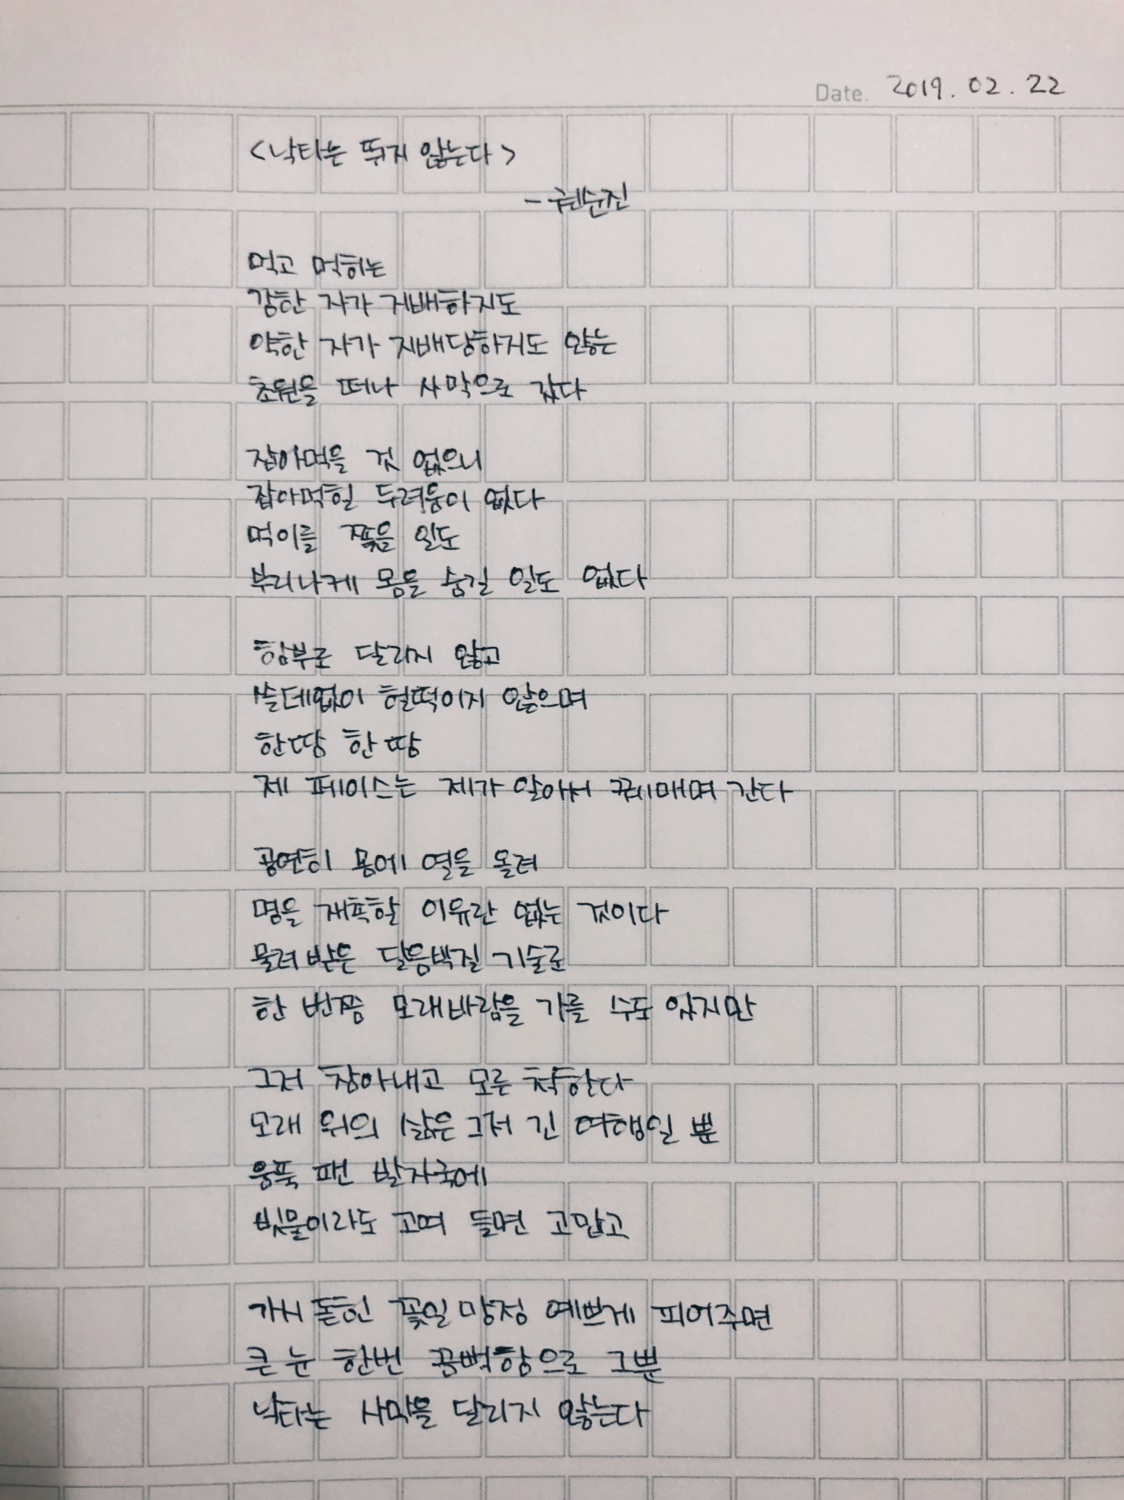 Date. 2019. 02. 22
<낙타는 뛰지 않는다>
- 권순진
먹고 먹히는
강한 자가 지배하지도
약한 자가 지배당하지도 않는
초원을 떠나 사막으로 갔다
잡아먹을 것 없으니
잡아먹힐 두려움이 없다
먹이를 쫓을 일도
부리나케 몸을 숨길 일도 없다
함부로 달리지 않고
쓸데없이 헐떡이지 않으며
한땀 한땀
제 페이스는 제가 알아서 꿰매며 간다
공연히 몸에 열을 올려
명을 재촉할 이유란 없는 것이다
물려받은 달음박질 기술로
한 번쯤 모래바람을 가를 수도 있지만
그저 참아내고 모른 척한다
모래 위의 삶은 그저 긴 여행일 뿐
움푹 팬 발자국에
빗물이라도 고여 들면 고맙고
가시 돋힌 꽃일 망정 예쁘게 피어주면
큰 눈 한번 끔뻑함으로 그뿐
낙타는 사막을 달리지 않는다